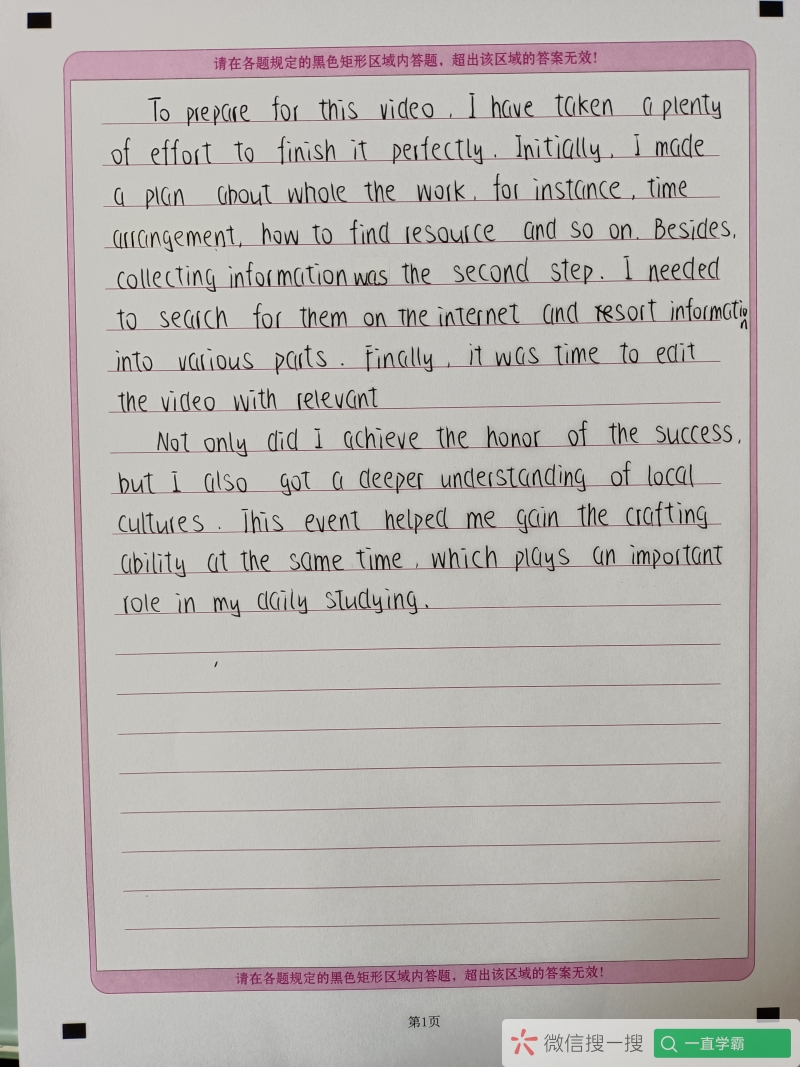 请在各题规定的黑色矩形区域内答题，超出该区域的答案无效！
To prepare for this video, I have taken a plenty
of effort to finish it perfectly. Initially, I made
a plan about whole the work, for instance, time
arrangement, how to find resource and so on. Besides,
collecting information was the second step. I needed
to search for them on the internet and resort information
into various parts. Finally, it was time to edit
the video with relevant
Not only did I achieve the honor of the success,
but I also got a deeper understanding of local
cultures. This event helped me gain the crafting
ability at the same time, which plays an important
role in my daily studying.
请在各题规定的黑色矩形区域内答题，超出该区域的答案无效！
第1页
微信搜一搜
一直学霸